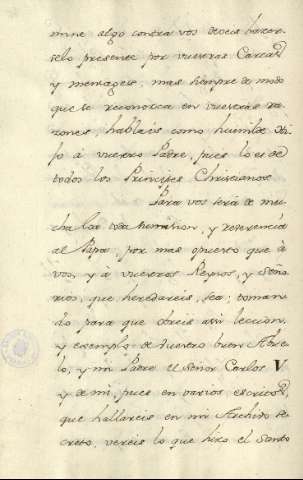 mine algo contra vos deveis hacer-
selo presente por vuestras Cartas
y mensages; mas siempre de modo
que se reconozca en vuestras ra-
zones, hablais como humilde Hi-
jo à vuestro Padre, pues lo es de
todos los Principes Christianos
Para vos será de mu-
cha loa toda sumision, y reverencia
al Papa, por mas opuesto que à
vos, y à vuestros Reynos, y Seño-
rios, que heredareis, sea; toman-
do para que obreis assi leccion,
y exemplo de vuestro buen Abue-
lo, y mi Padre el Señor Carlos V
y de mi, pues en varios escritos,
que hallareis en mi Archivo se-
creto, vereis lo que hizo el Santo